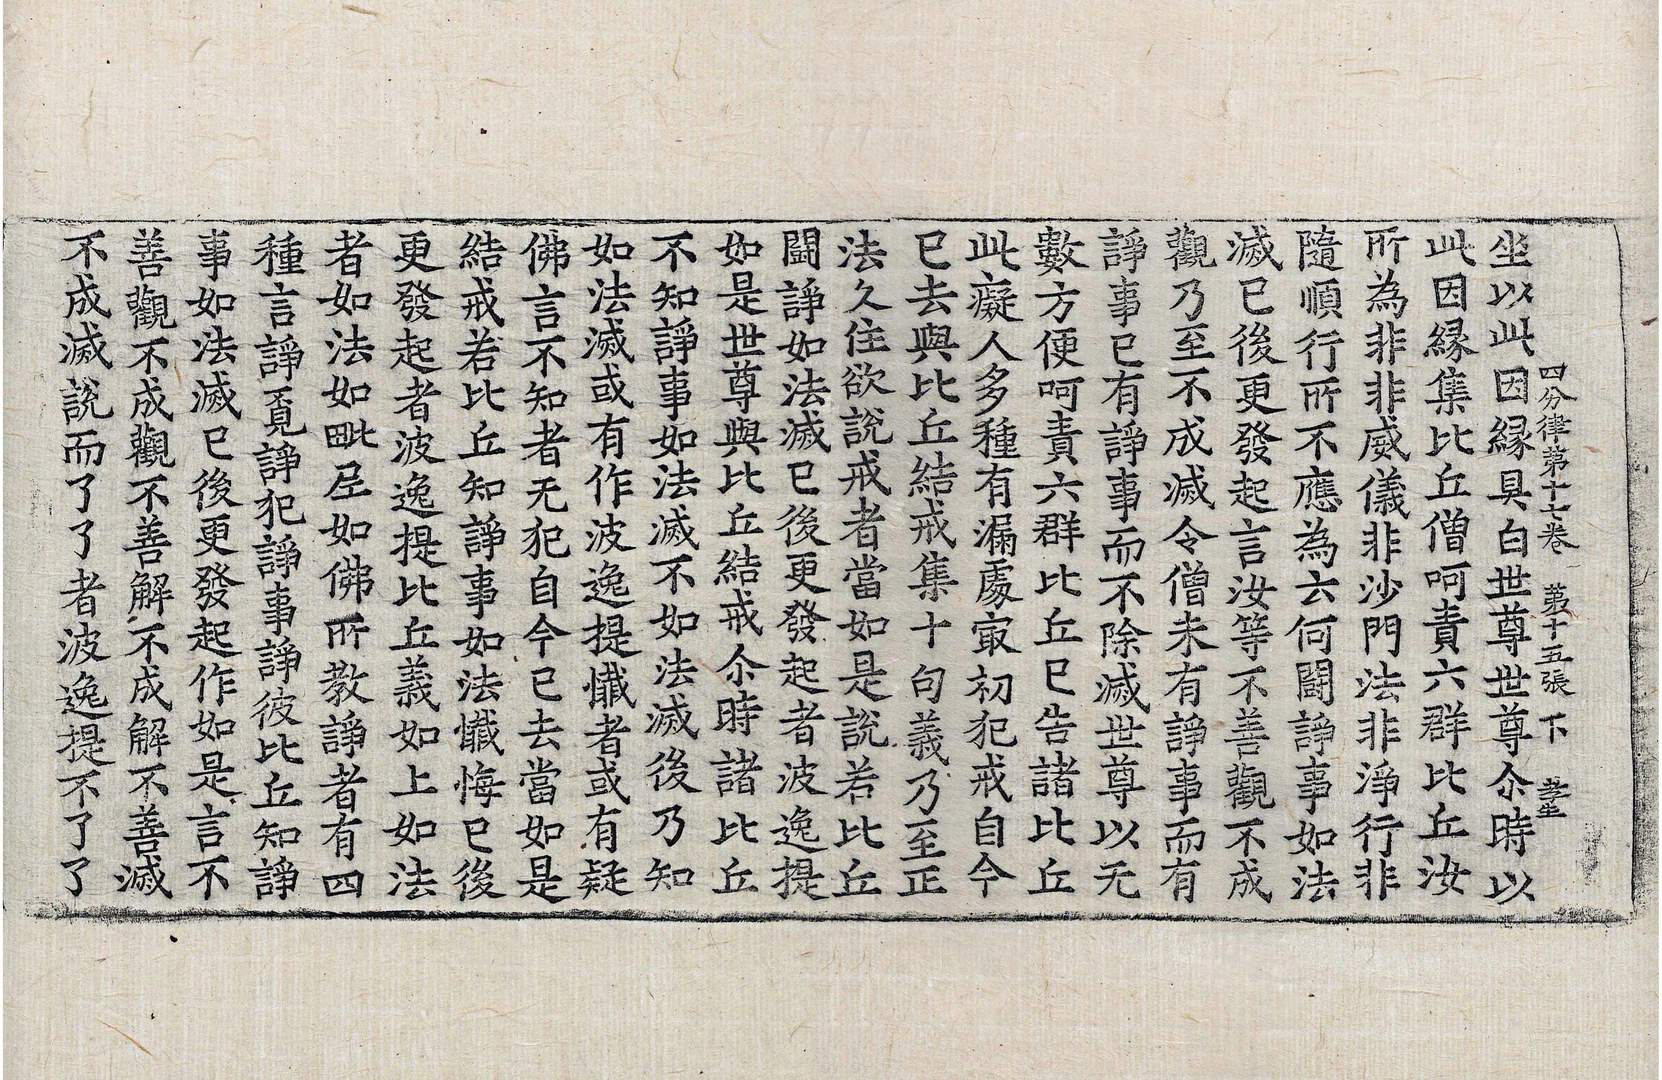 四分律第十七卷 第十五張 下
坐以此因縁具白世尊世尊尒時以
此因縁集比丘僧呵責六群比丘汝
所為非非威儀非沙門法非淨行非
隨順行所不應為云何鬪諍事如法
滅已後更發起言汝等不善觀不成
觀乃至不成滅令僧未有諍事而有
諍事已有諍事而不除滅世尊以无
數方便呵責六群比丘已告諸比丘
此癡人多種有漏處㝡初犯戒自今
已去與比丘結戒集十句義乃至正
法久住欲說戒者當如是說若比丘
鬪諍如法滅已後更發起者波逸提
如是世尊與比丘結戒尒時諸比丘
不知諍事如法滅不如法滅後乃知
如法滅或有作波逸提懺者或有疑
佛言不知者无犯自今已去當如是
結戒若比丘知諍事如法懺悔已後
更發起者波逸提比丘義如上如法
者如法如毗尼如佛所教諍者有四
種言諍覓諍犯諍事諍彼比丘知諍
事如法滅已後更發起作如是言不
善觀不成觀不善解不成解不善滅
不成滅說而了了者波逸提不了了